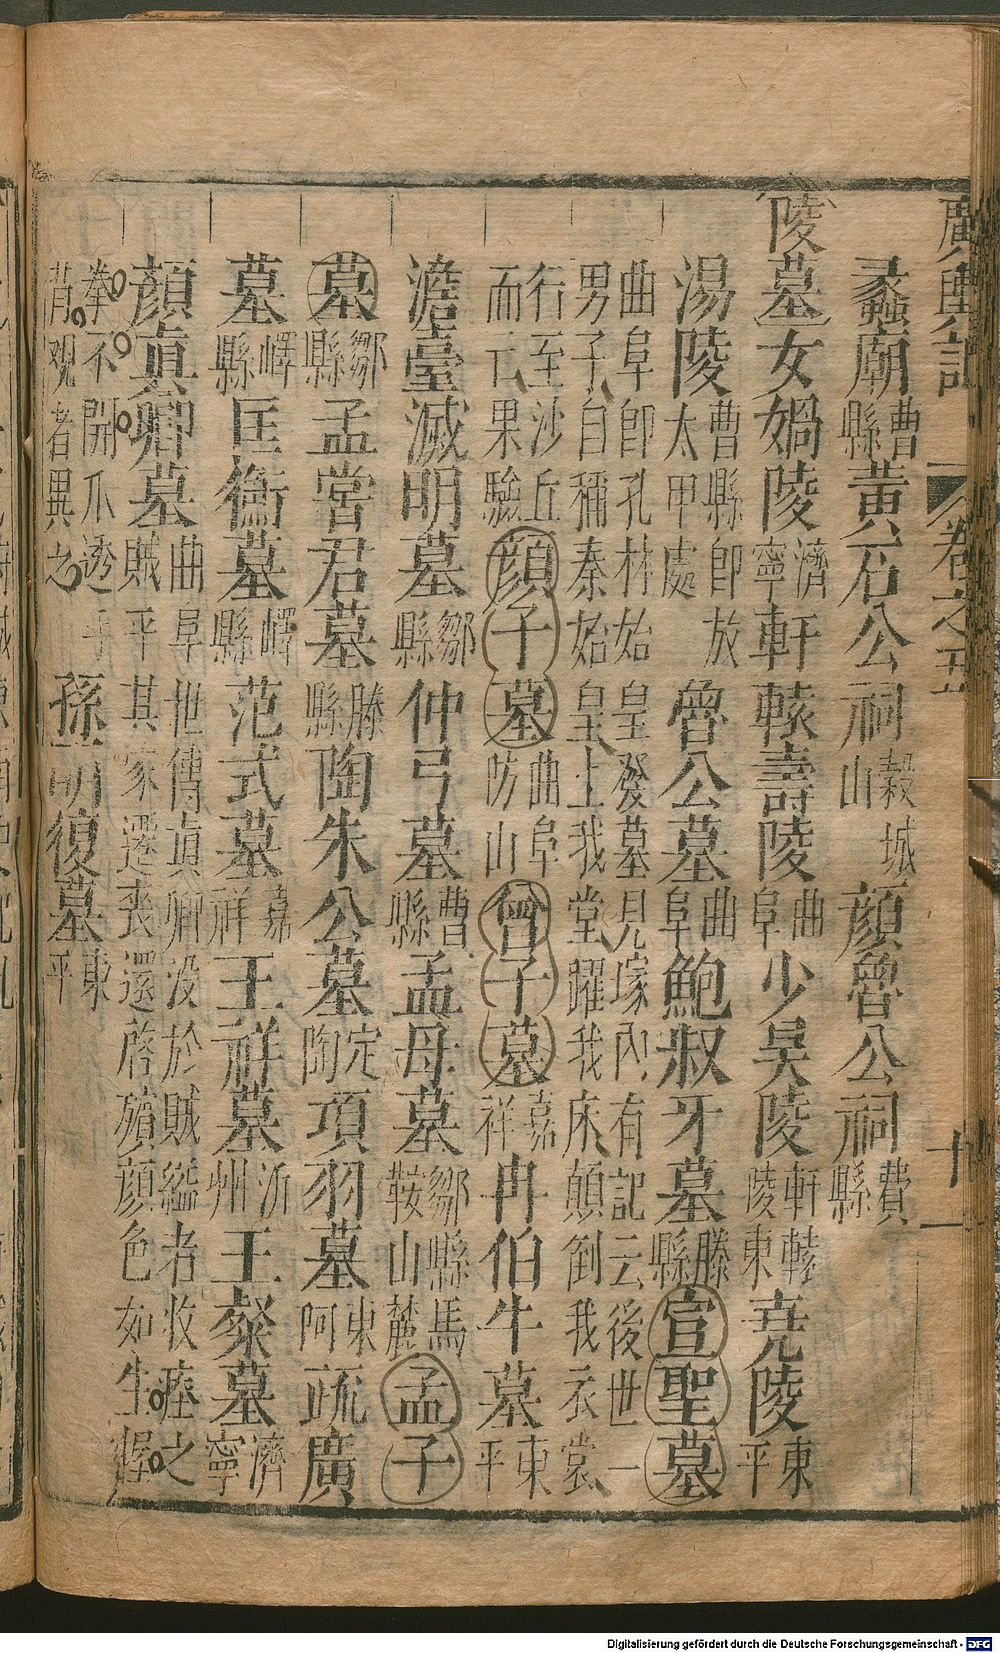 廣輿記 卷之五 十一
蠡廟曹縣黃石公祠穀城山顏魯公祠費縣
陵墓女媧陵濟寧軒轅壽陵曲阜少昊陵軒轅陵東堯陵東平
湯陵曹縣即放太甲處魯公墓曲阜鮑叔牙墓滕縣宣聖墓
曲阜即孔林始皇發墓見塚內有記云後世一男子自稱秦始皇上我堂躍我床顛倒我衣裳
行至沙丘而亡果驗顏子墓曲阜防山曾子墓嘉祥冉伯牛墓東平
澹臺滅明墓鄒縣仲弓墓曹縣孟母墓鄒縣馬鞍山麓孟子
墓鄒縣孟嘗君墓滕縣陶朱公墓定陶項羽墓東阿疏廣
墓嶧縣匡衡墓嶧縣范式墓嘉祥王祥墓沂州王粲墓濟寧
顏真卿墓曲阜世傳真卿沒於賊縊者收瘞之賊平其家遷喪還啓殯顏色如生握
拳不開爪透手背觀者異之孫明復墓東平
Digitalisierung gefördert durch die Deutsche Forschungsgemeinschaft - DFG